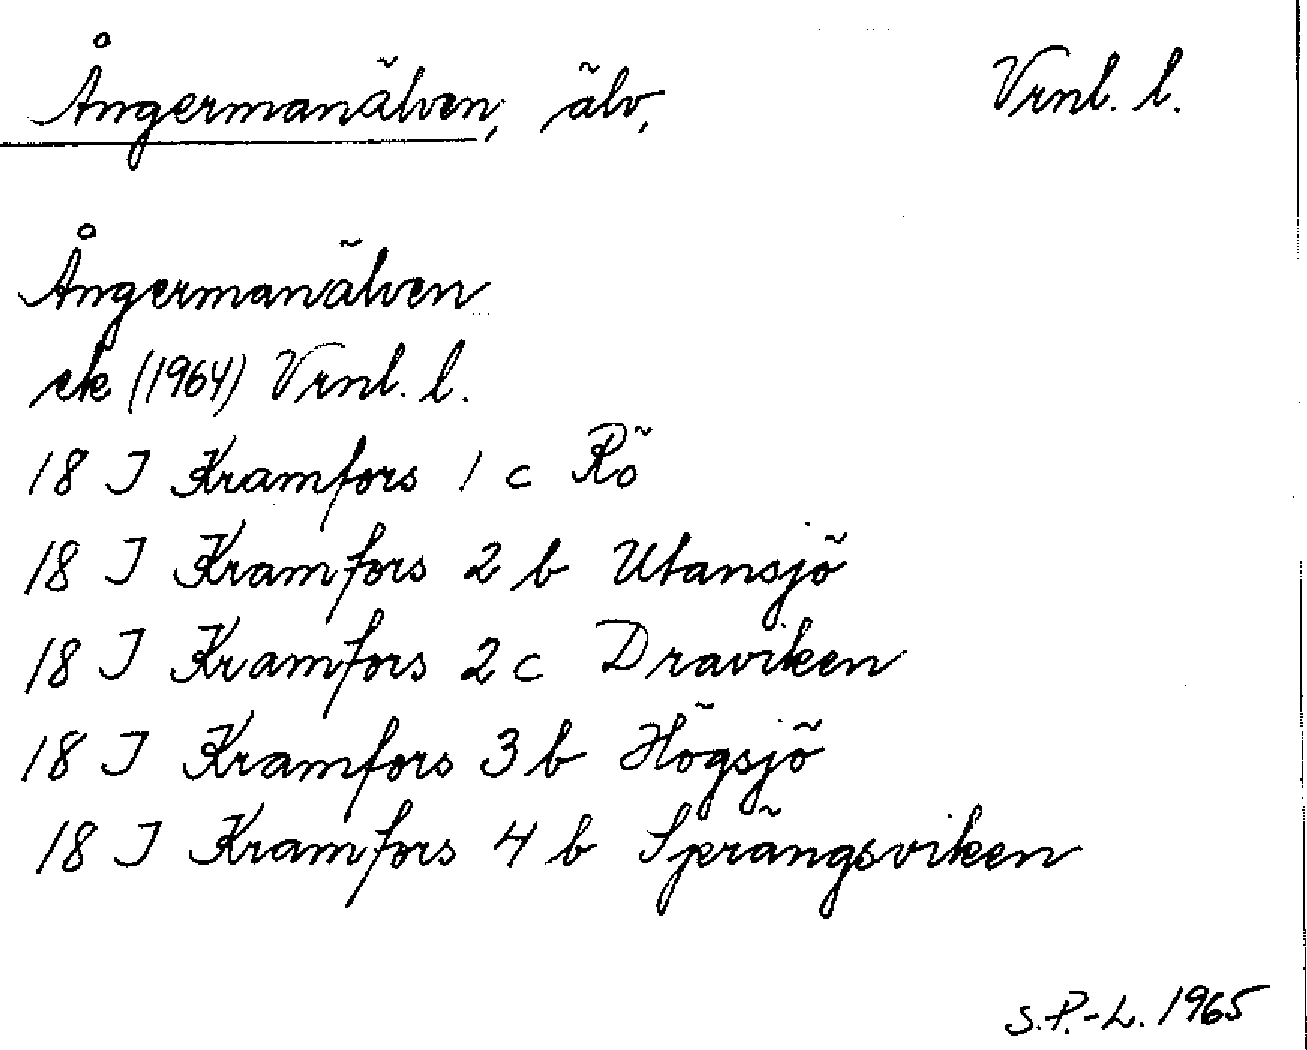 Ångermanälven, älv, Vrnl. l.
Ångermanälven
ek (1964) Vrnl. l.
18 I Kramfors 1 c Rö
18 I Kramfors 2 b Utansjö
18 I Kramfors 2 c Draviken
18 I Kramfors 3 b Högsjö
18 I Kramfors 4 b Sprängsviken
S.P.-L. 1965